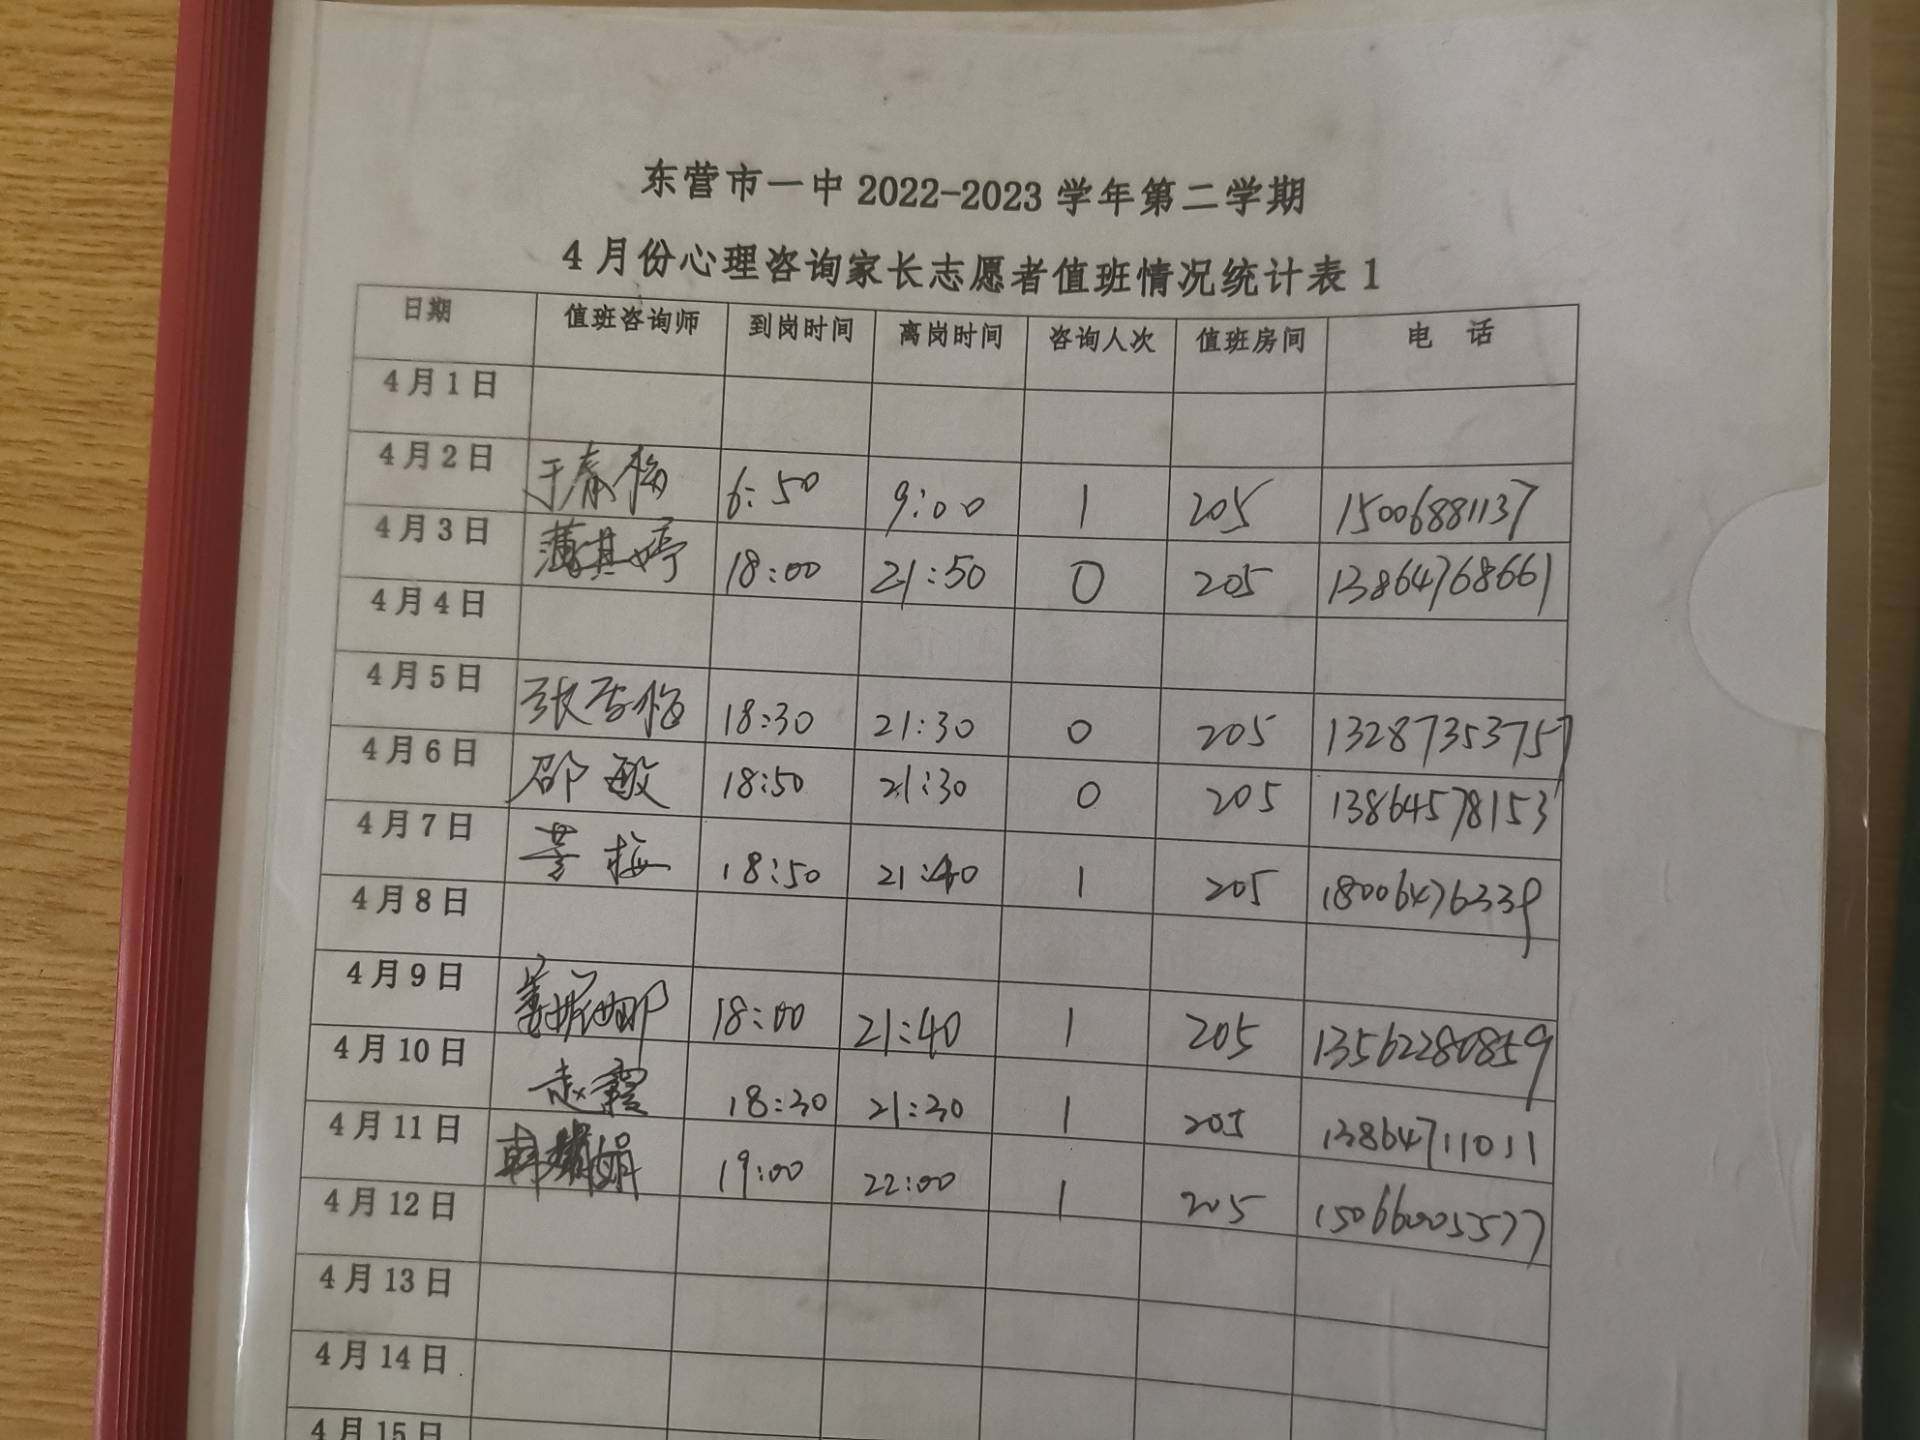 东营市一中 2022-2023 学年第二学期
4 月份心理咨询家长志愿者值班情况统计表 1
日期 值班咨询师 到岗时间 离岗时间 咨询人次 值班房间 电 话
4 月 1 日
4 月 2 日 于春梅 6:50 9:00 1 205 15006881137
4 月 3 日 薄其婷 18:00 21:50 0 205 13864768661
4 月 4 日
4 月 5 日 张香梅 18:30 21:30 0 205 13287353757
4 月 6 日 邵敏 18:50 21:30 0 205 13864578153
4 月 7 日 梅 18:50 21:40 1 205 18006476339
4 月 8 日
4 月 9 日 娜 18:00 21:40 1 205 13562280859
4 月 10 日 赵霞 18:30 21:30 1 205 13864711011
4 月 11 日 娟 19:00 22:00 1 205 15066005577
4 月 12 日
4 月 13 日
4 月 14 日
4 月 15 日